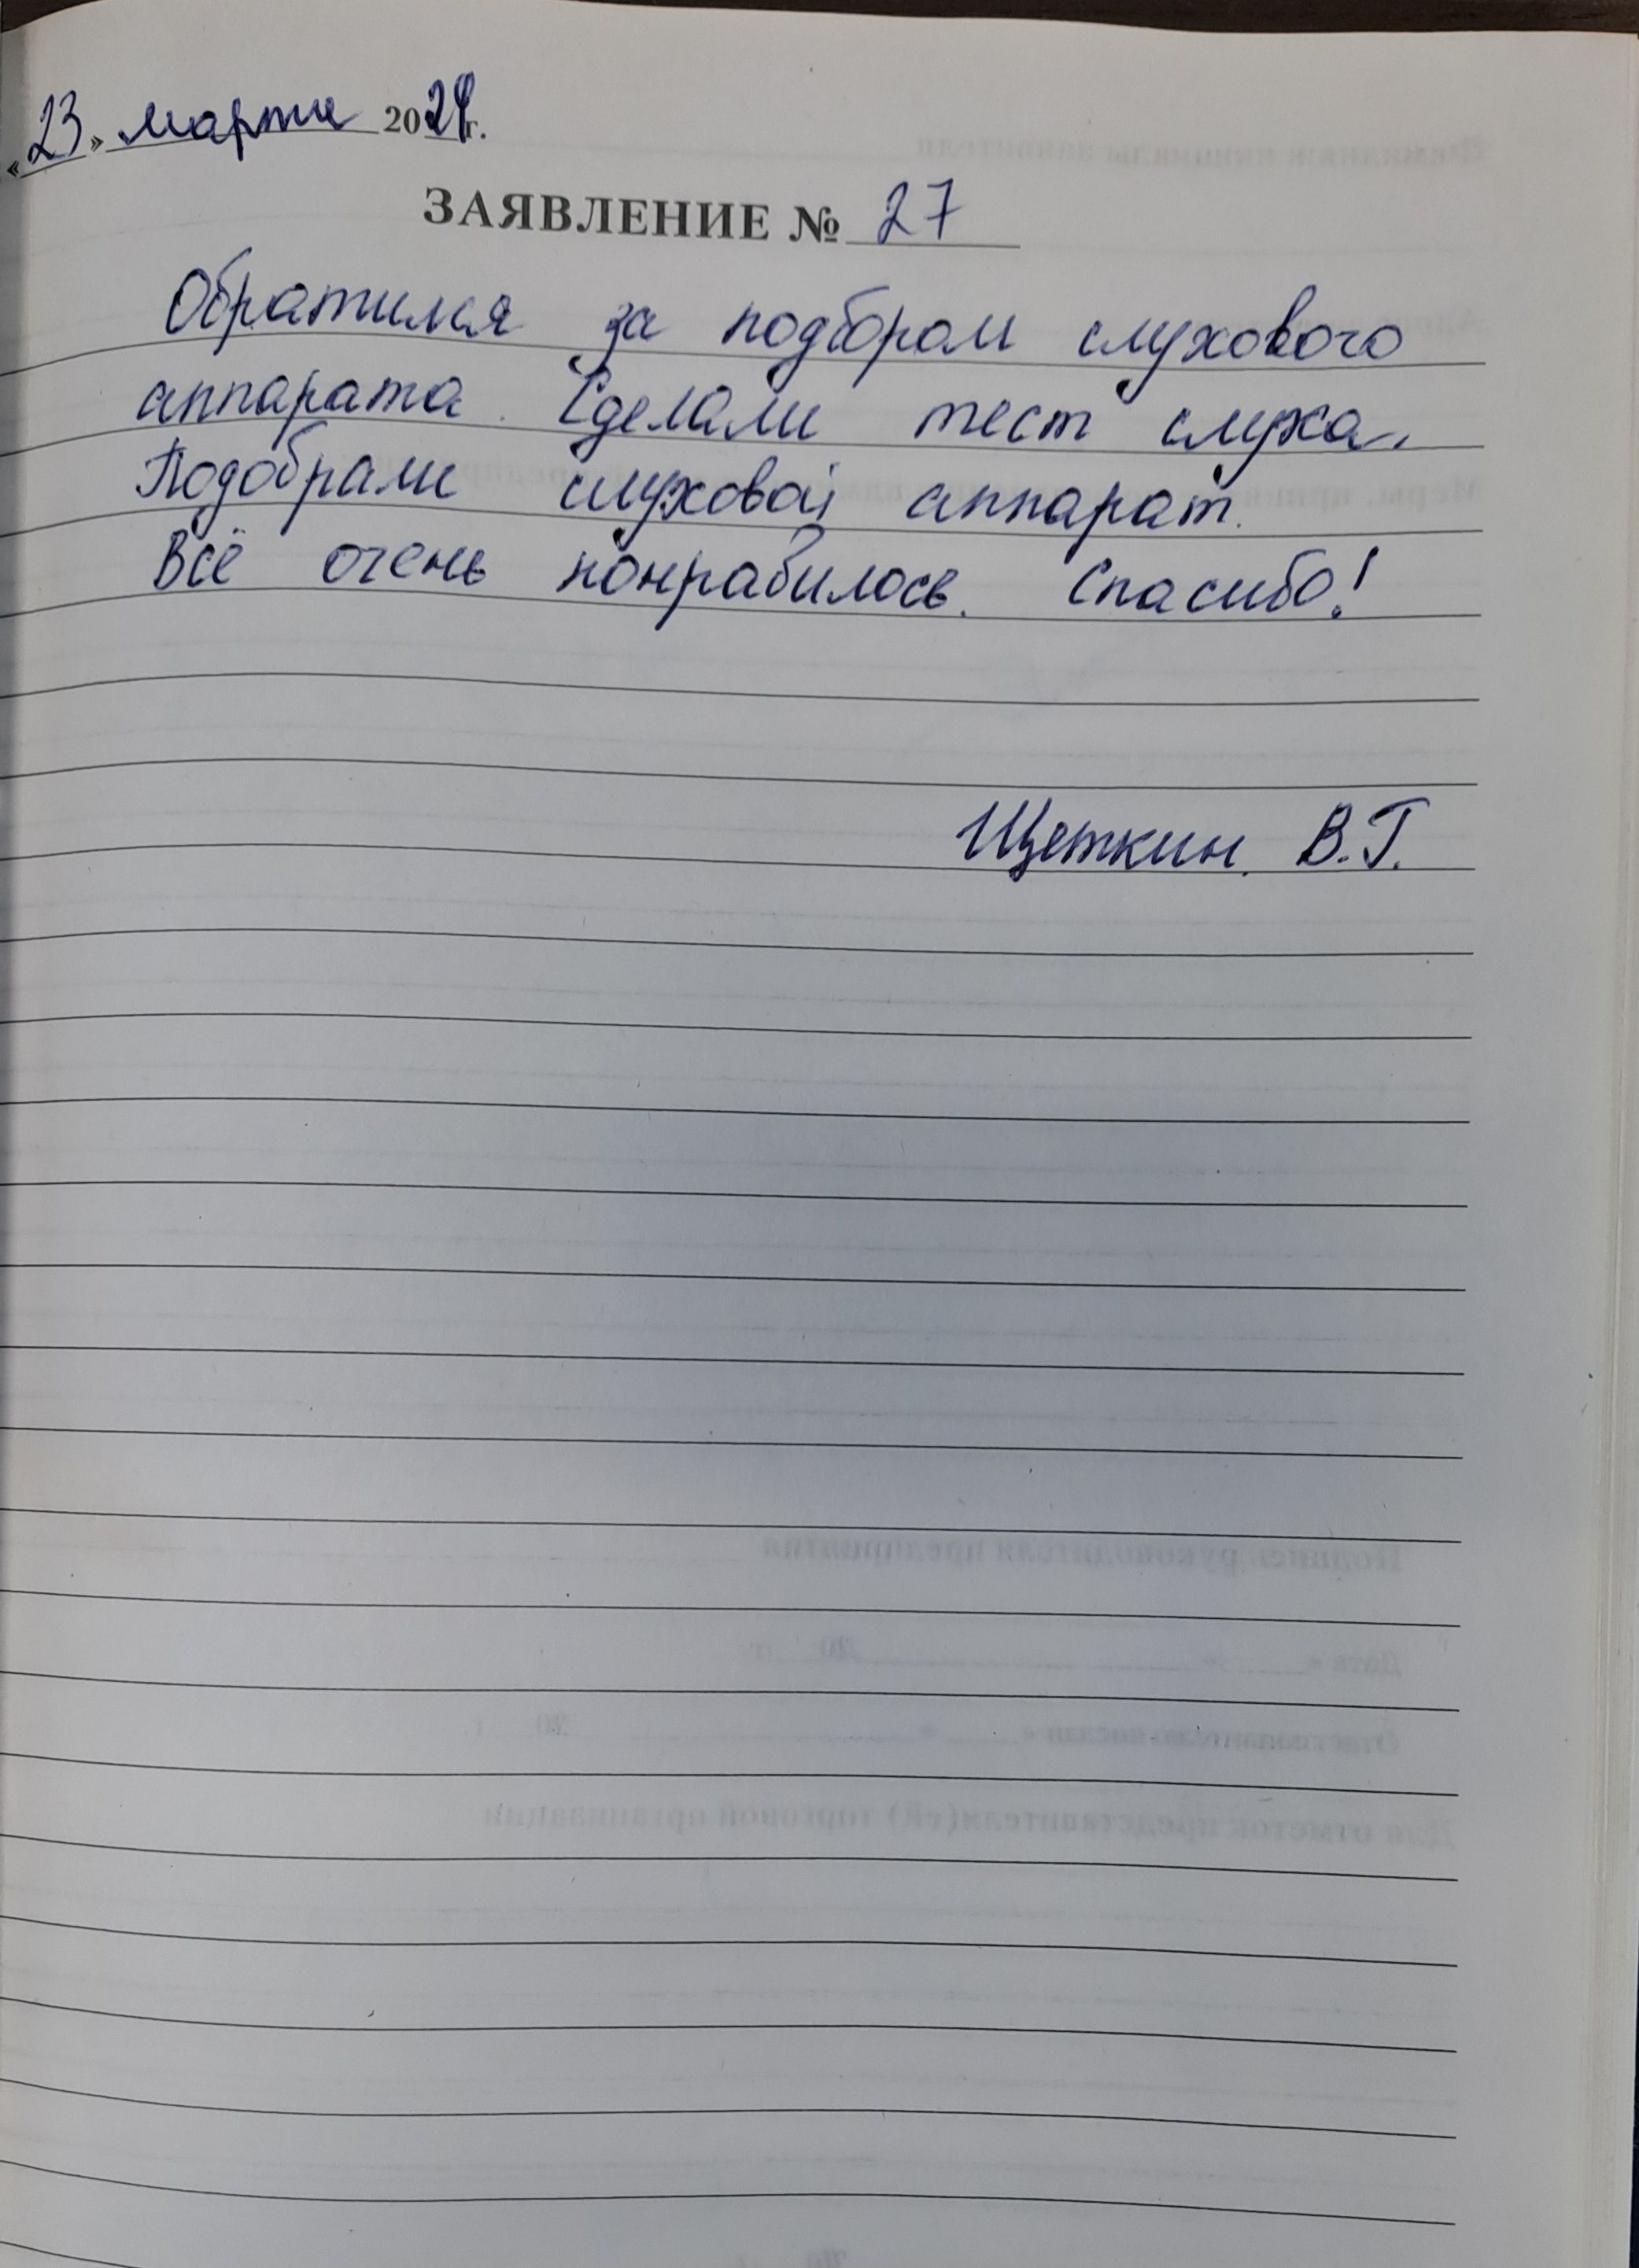 «23» марта 2024г.
ЗАЯВЛЕНИЕ № 27
Обратился за подбором слухового
аппарата. Сделали тест слуха.
Подобрали слуховой аппарат.
Всё очень понравилось. Спасибо!
Щеткин. В.Г.